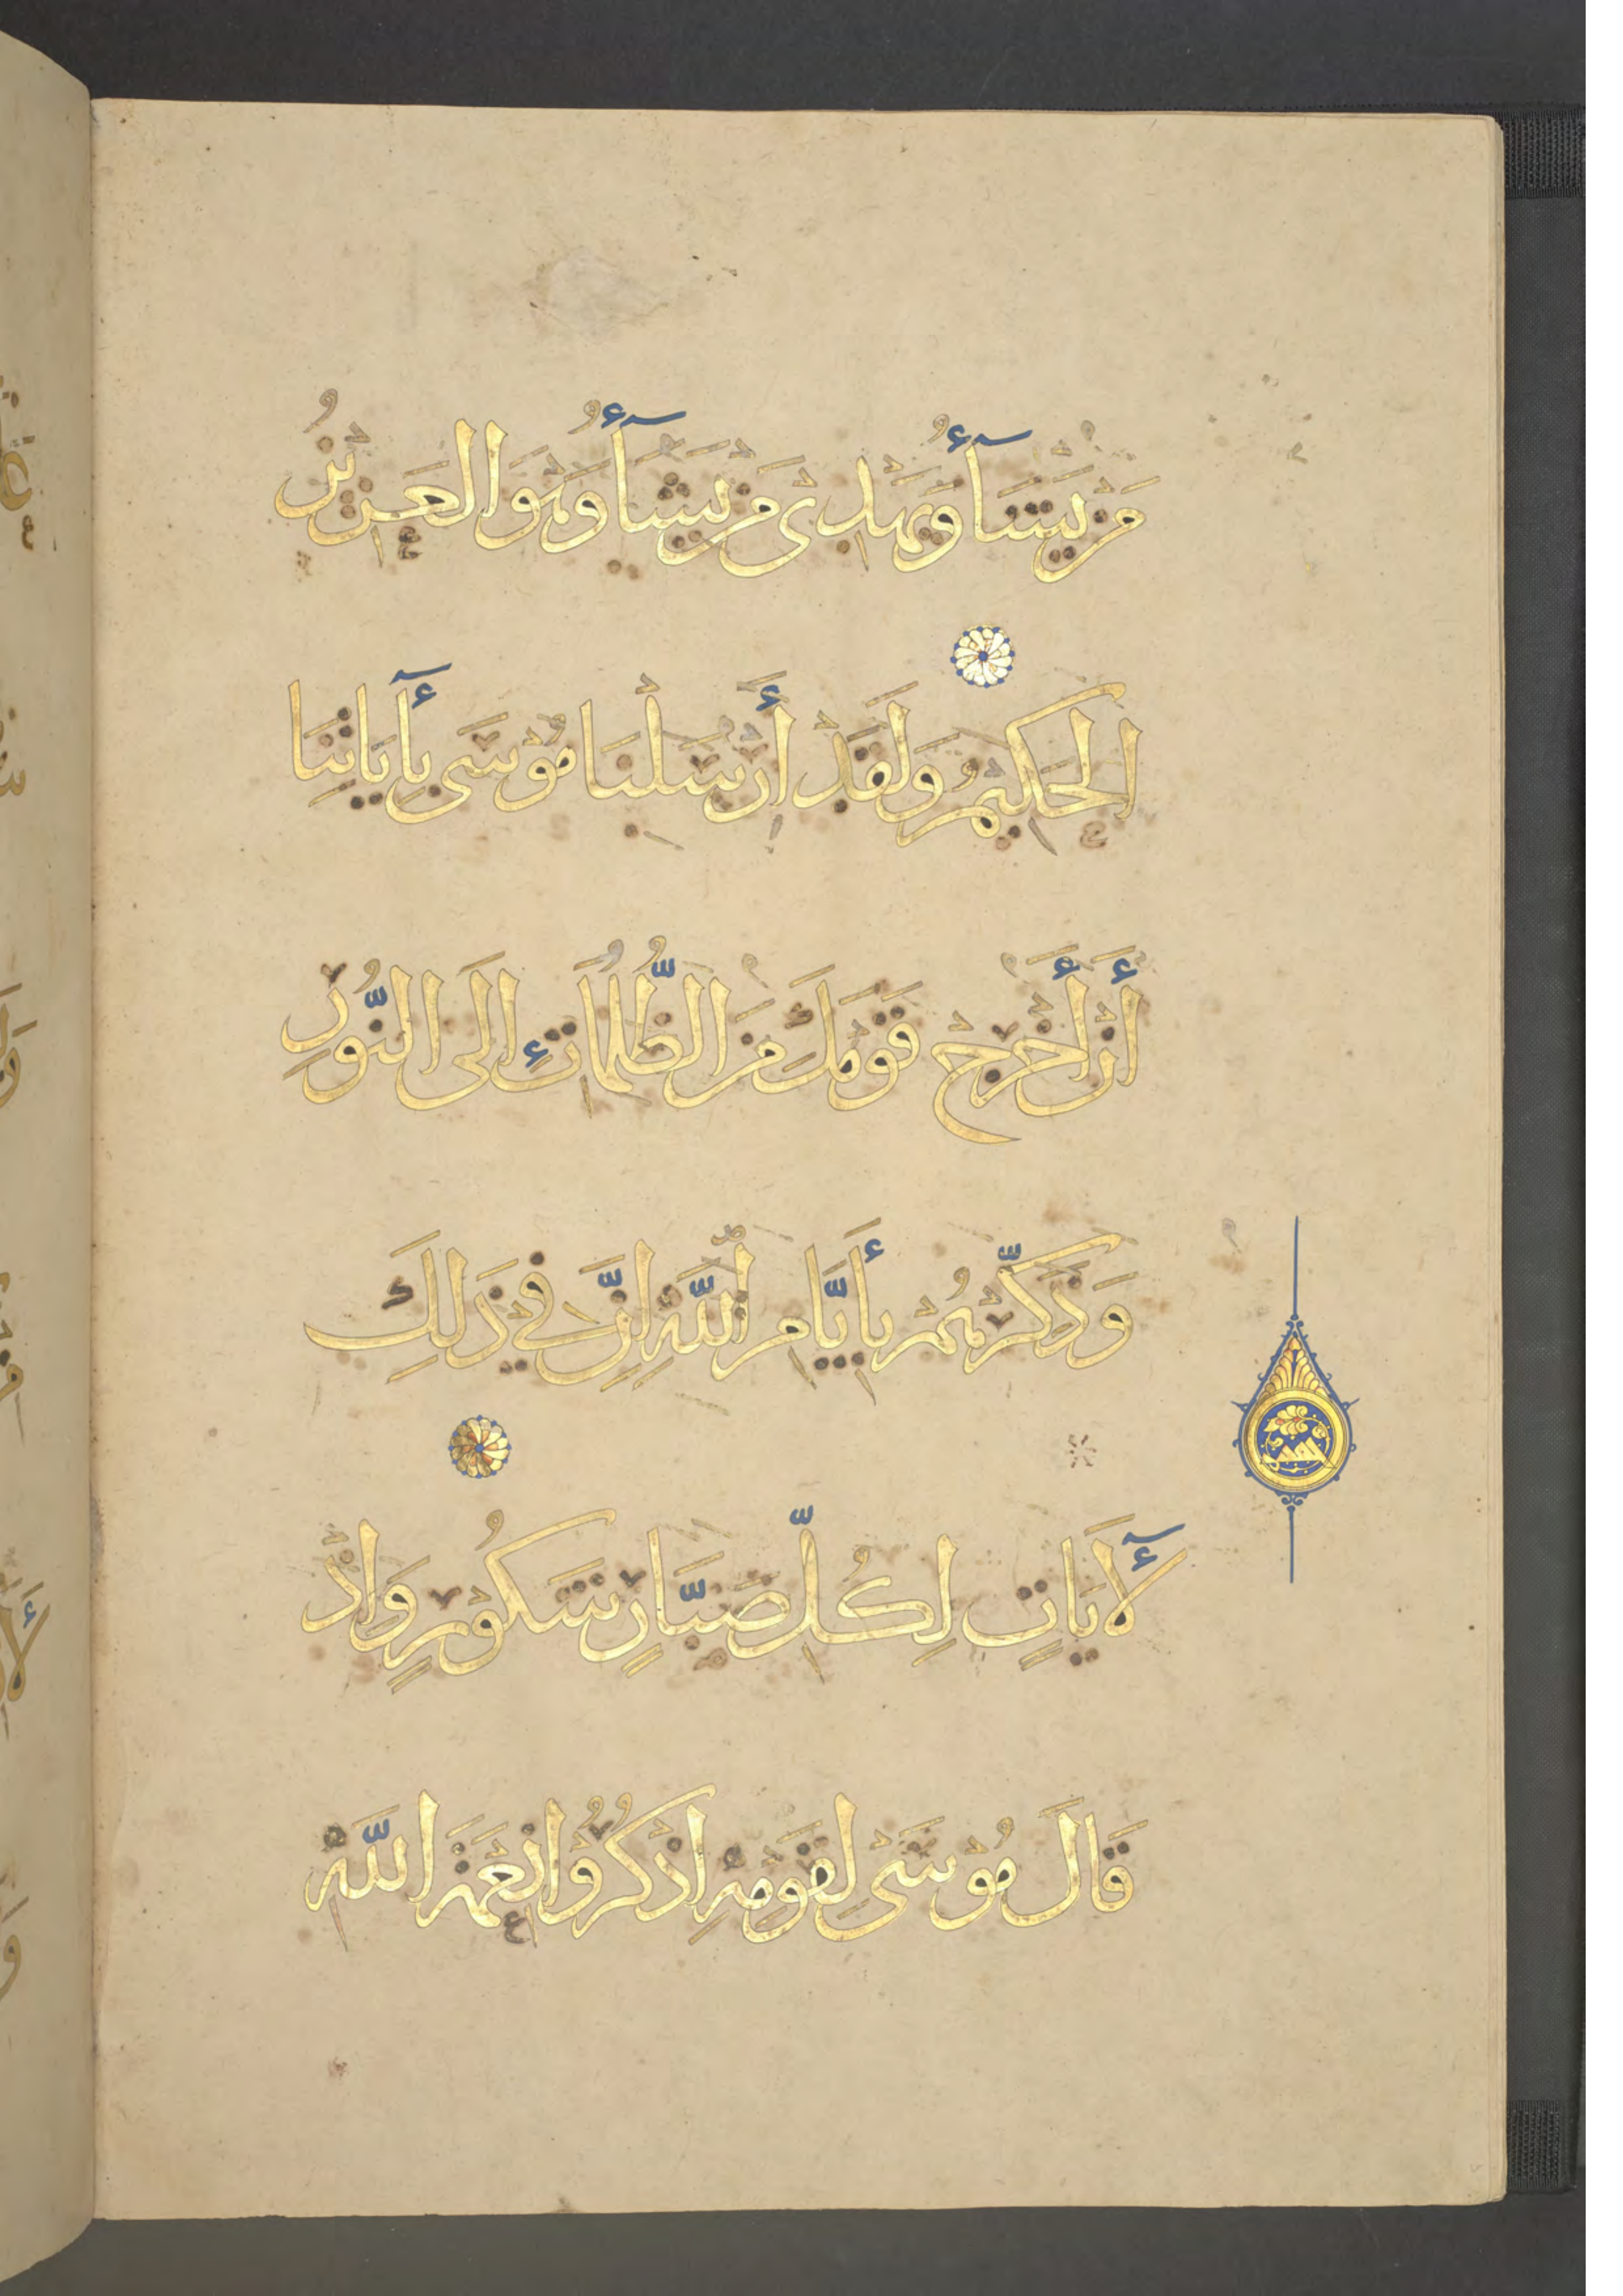 مَن يَشَآءُ وَيَهْدِى مَن يَشَآءُ وَهُوَ العَزِيْزُ
الحَكِيْمُ وَلَقَدْ أَرْسَلْنَا مُوْسَى بِأٓيَاتِنَا
أَنْ أَخْرِجْ قَوْمَكَ مِنَ الظُّلُمَاتِ إِلَى النُّوْرِ
وَذَكِّرْهُمْ بِأَيَّامِ اللّٰهِ اِنَّ فِيْ ذَلِكَ
لَأٓيَاتٍ لِكُلِّ صَبَّارٍ شَكُوْرٍ وَاِذْ
قَالَ مُوْسَى لِقَوْمِهِ اذْكُرُوْا نِعْمَةَ اللّٰهِ